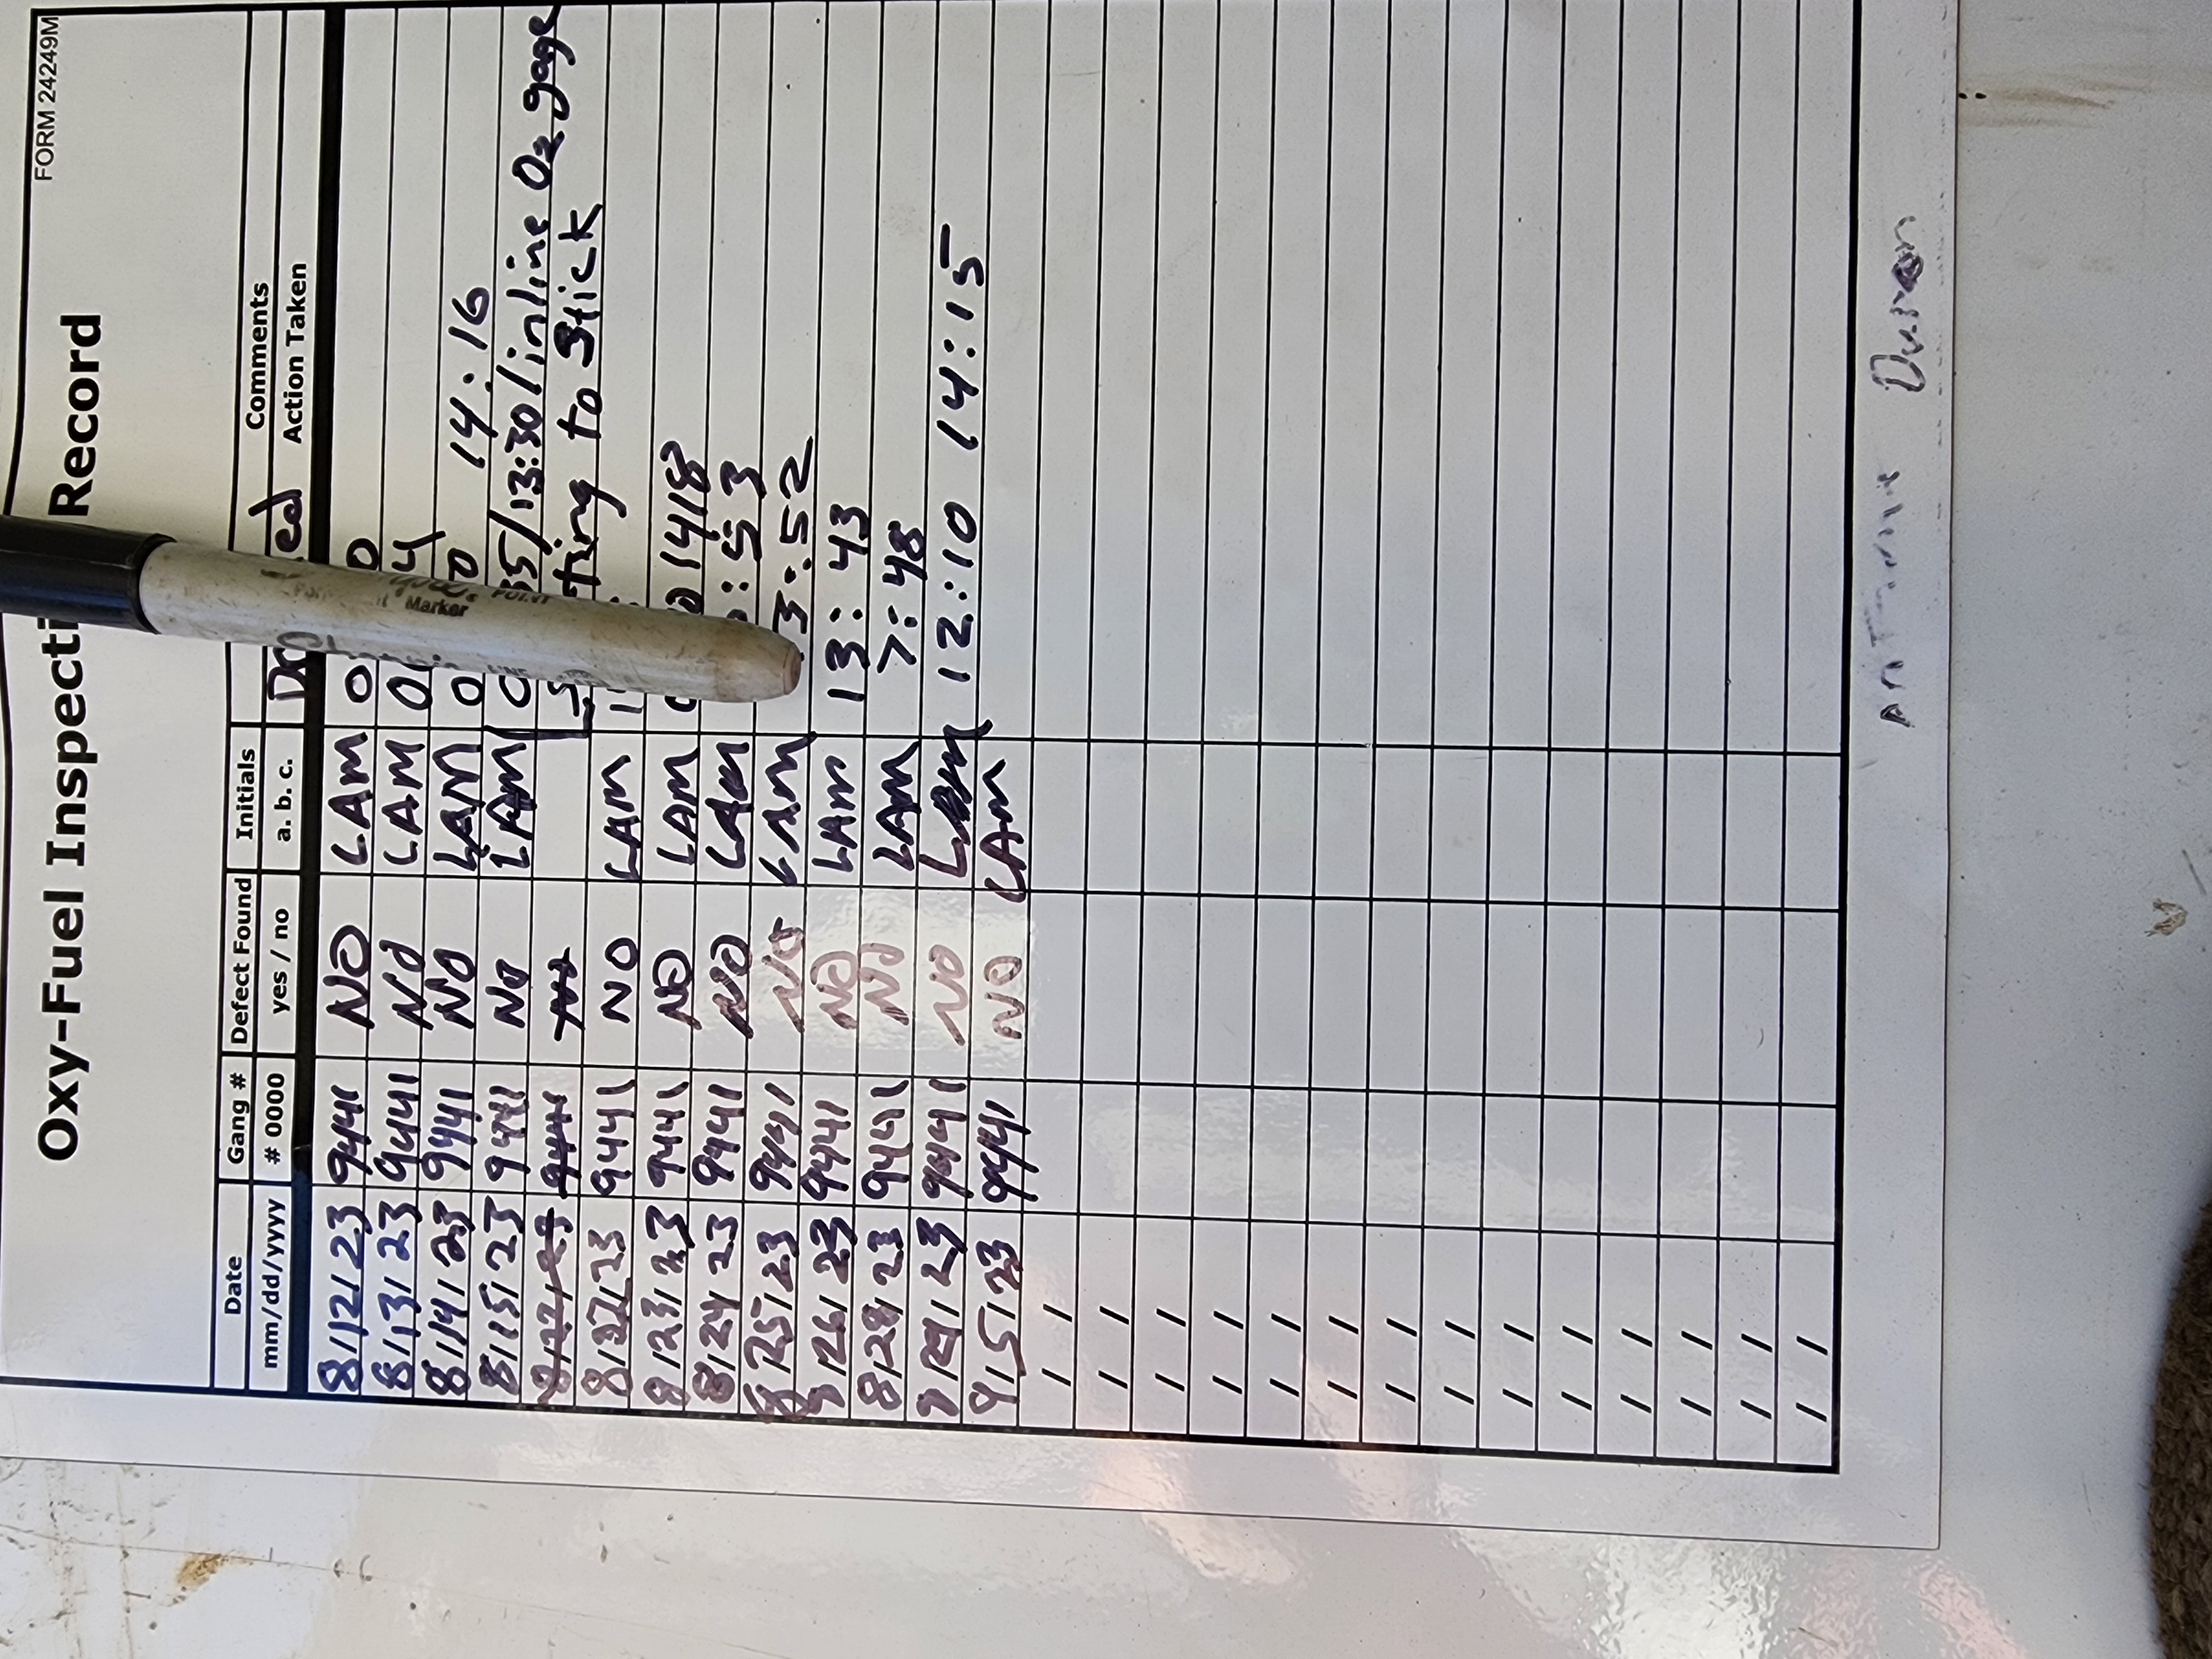 FORM 24249M
Oxy-Fuel Inspecti Record
Date Gang # Defect Found Initials Comments
mm/dd/yyyy # 0000 yes / no a. b. c. Action Taken
8/12/23 9441 NO LAM 0
8/13/23 9441 NO LAM
8/14/23 9441 NO LAM 14:16
8/15/23 9441 NO LAM 35/13:30/inline O2 gage
9441 NO ting to Stick
8/ /23 9441 NO LAM
8/23/23 9441 NO LAM 1418
8/24/23 9441 NO LAM :53
8/25/23 9441 NO LAM 3:52
8/26/23 9441 NO LAM 13:43
8/28/23 9441 NO LAM 7:48
/23 9441 NO LAM 12:10 14:15
9/5/23 9441 NO LAM
Marker
POINT
Duran